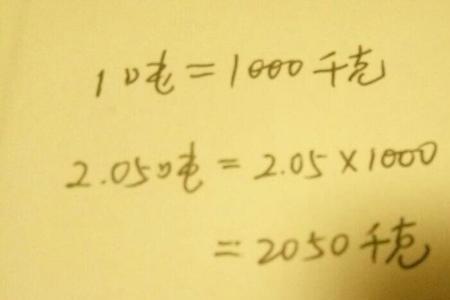 1吨=1000千克
2.05吨=2.05×1000
=2050千克